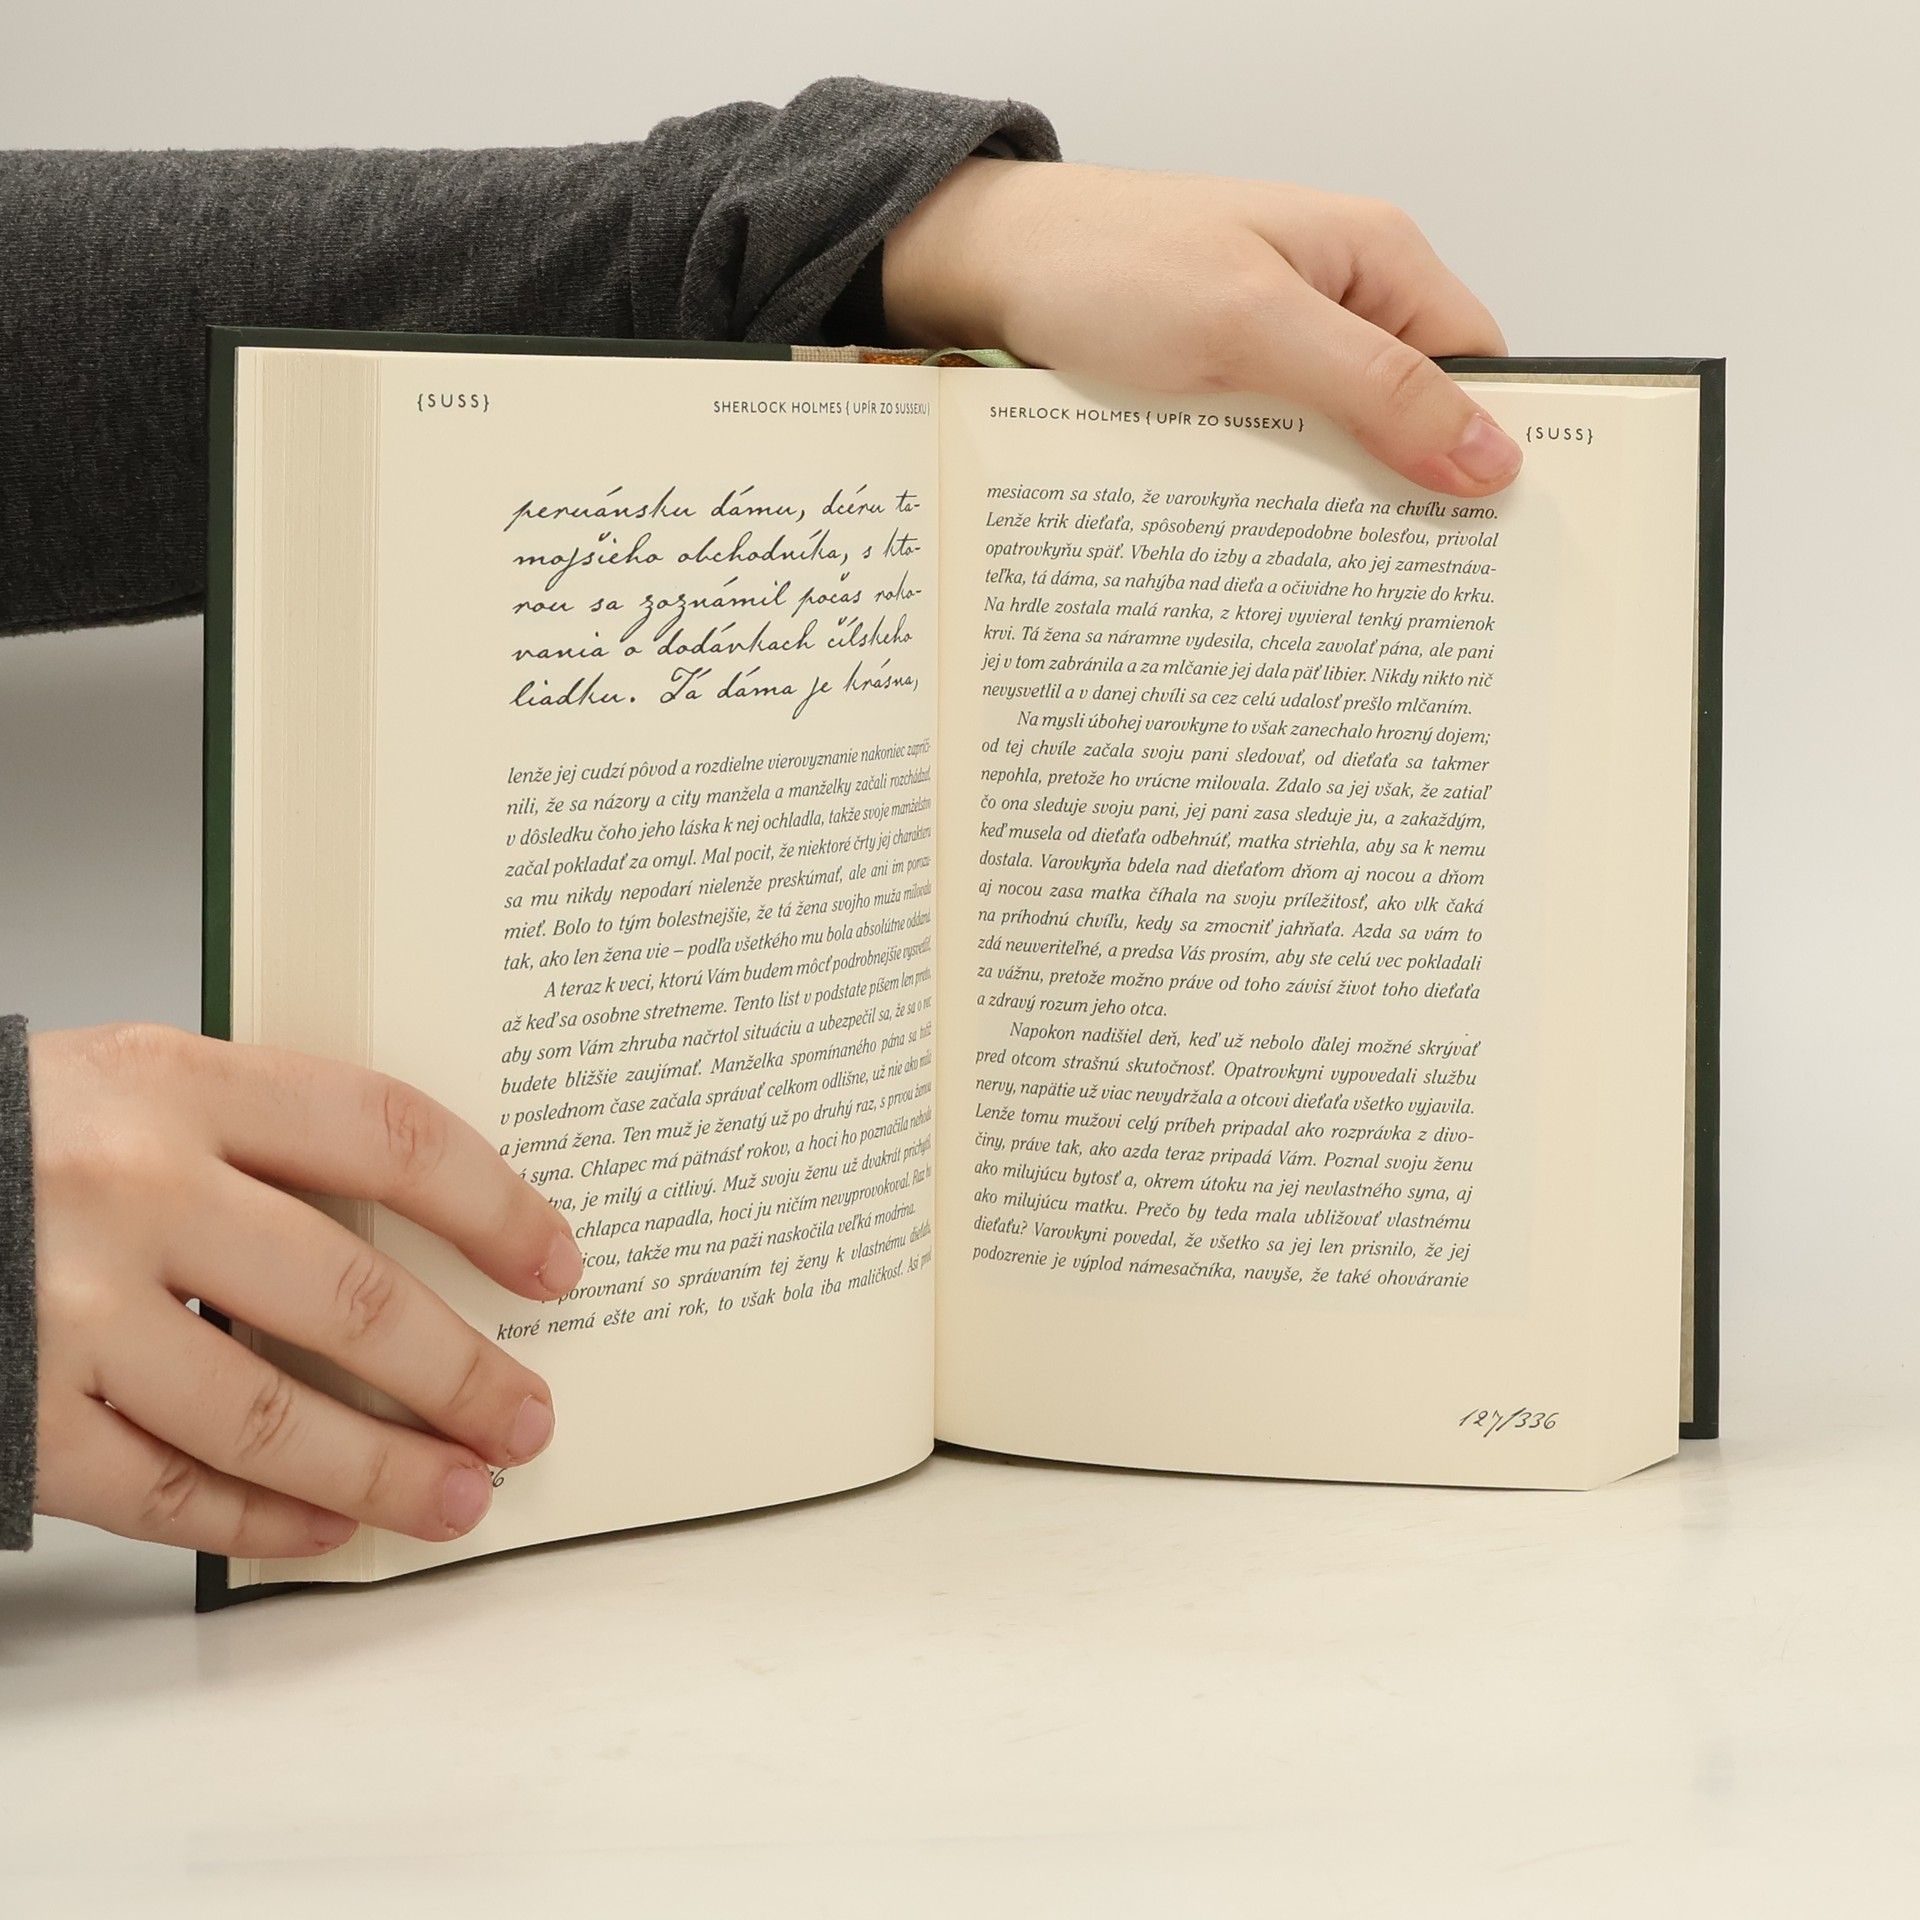 {SUSS}
SHERLOCK HOLMES { UPÍR ZO SUSSEXU }
peruánsku dámu, dcéru ta-
mojšieho obchodníka, s kto-
rou sa zoznámil počas roko-
vania o dodávkach čílskeho
liadku. Tá dáma je krásna,
lenže jej cudzí pôvod a rozdielne vierovyznanie nakoniec zapríči-
nili, že sa názory a city manžela a manželky začali rozchádzať,
v dôsledku čoho jeho láska k nej ochladla, takže svoje manželstvo
začal pokladať za omyl. Mal pocit, že niektoré črty jej charakteru
sa mu nikdy nepodarí nielenže preskúmať, ale ani im porozu-
mieť. Bolo to tým bolestnejšie, že tá žena svojho muža milovala
tak, ako len žena vie – podľa všetkého mu bola absolútne oddaná.
A teraz k veci, ktorú Vám budem môcť podrobnejšie vysvetliť,
až keď sa osobne stretneme. Tento list v podstate píšem len preto,
aby som Vám zhruba načrtol situáciu a ubezpečil sa, že sa o vec
budete bližšie zaujímať. Manželka spomínaného pána sa totiž
v poslednom čase začala správať celkom odlišne, už nie ako milá
a jemná žena. Ten muž je ženatý už po druhý raz, s prvou ženou
má syna. Chlapec má pätnásť rokov, a hoci ho poznačila nehoda
je milý a citlivý. Muž svoju ženu už dvakrát prichytil,
chlapca napadla, hoci ju ničím nevyprovokoval. Raz ho
takže mu na paži naskočila veľká modrina.
porovnaní so správaním tej ženy k vlastnému dieťaťu,
ktoré nemá ešte ani rok, to však bola iba maličkosť. Asi pred
SHERLOCK HOLMES { UPÍR ZO SUSSEXU }
{SUSS}
mesiacom sa stalo, že varovkyňa nechala dieťa na chvíľu samo.
Lenže krik dieťaťa, spôsobený pravdepodobne bolesťou, privolal
opatrovkyňu späť. Vbehla do izby a zbadala, ako jej zamestnáva-
teľka, tá dáma, sa nahýba nad dieťa a očividne ho hryzie do krku.
Na hrdle zostala malá ranka, z ktorej vyvieral tenký pramienok
krvi. Tá žena sa náramne vydesila, chcela zavolať pána, ale pani
jej v tom zabránila a za mlčanie jej dala päť libier. Nikdy nikto nič
nevysvetlil a v danej chvíli sa cez celú udalosť prešlo mlčaním.
Na mysli úbohej varovkyne to však zanechalo hrozný dojem;
od tej chvíle začala svoju pani sledovať, od dieťaťa sa takmer
nepohla, pretože ho vrúcne milovala. Zdalo sa jej však, že zatiaľ
čo ona sleduje svoju pani, jej pani zasa sleduje ju, a zakaždým,
keď musela od dieťaťa odbehnúť, matka striehla, aby sa k nemu
dostala. Varovkyňa bdela nad dieťaťom dňom aj nocou a dňom
aj nocou zasa matka číhala na svoju príležitosť, ako vlk čaká
na príhodnú chvíľu, kedy sa zmocniť jahňaťa. Azda sa vám to
zdá neuveriteľné, a predsa Vás prosím, aby ste celú vec pokladali
za vážnu, pretože možno práve od toho závisí život toho dieťaťa
a zdravý rozum jeho otca.
Napokon nadišiel deň, keď už nebolo ďalej možné skrývať
pred otcom strašnú skutočnosť. Opatrovkyni vypovedali službu
nervy, napätie už viac nevydržala a otcovi dieťaťa všetko vyjavila.
Lenže tomu mužovi celý príbeh pripadal ako rozprávka z divo-
činy, práve tak, ako azda teraz pripadá Vám. Poznal svoju ženu
ako milujúcu bytosť a, okrem útoku na jej nevlastného syna, aj
ako milujúcu matku. Prečo by teda mala ubližovať vlastnému
dieťaťu? Varovkyni povedal, že všetko sa jej len prisnilo, že jej
podozrenie je výplod námesačníka, navyše, že také ohováranie
127/336